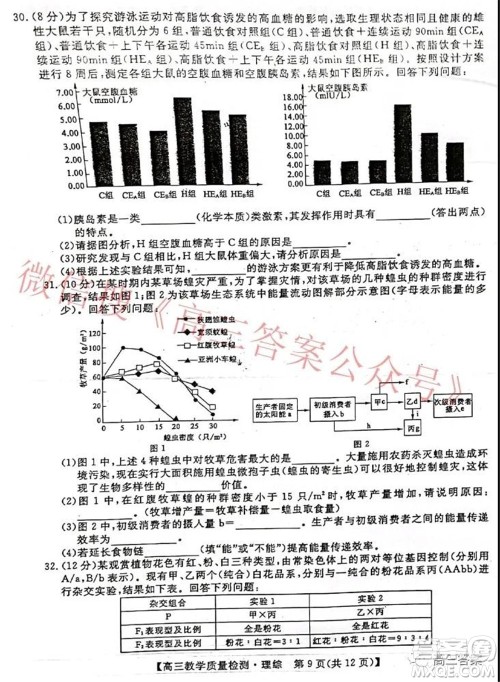 30.(8分)为了探究游泳运动对高脂饮食诱发的高血糖的影响,选取生理状态相同且健康的雄
性大鼠若干只,随机分为6组,普通饮食对照组(C组)、普通饮食+连续运动90min组(CEA
组)、普通饮食+上下午各运动45min组(CEB组)、高脂饮食对照组(H组)、高脂饮食+连续运
动90min组(HEA组)、高脂饮食+上下午各运动45min组(HEB组)。按照设计方案
进行8周后,测定各组大鼠的空腹血糖和空腹胰岛素,结果如下图。回答下列问题:
大鼠空腹血糖
(mmol/L)
7.00
6.00
5.00
4.00
3.00
2.00
1.00
0.00
C组 CEA组 CEB组 H组 HEA组 HEB组
大鼠空腹胰岛素
(mIU/L)
18.00
16.00
14.00
12.00
10.00
8.00
6.00
4.00
2.00
0.00
C组 CEA组 CEB组 H组 HEA组 HEB组
(1)胰岛素是一类(化学本质)类激素,其发挥作用具有(答出两点)
的特点。
(2)请据图分析,H组空腹血糖高于C组的原因是。
(3)研究发现与C组相比,H组大鼠体重偏大,请分析原因。
(4)根据上述实验结果可知,的游泳方案更有利于降低高脂饮食诱发的高血糖。
31.(10分)在某时期内某草场蝗灾严重,为了掌握灾情,对该草场的几种蝗虫的种群密度进行
调查,结果如图1;图2为该草场生态系统中能量流动图解部分示意图(字母表示能量的多
少)。回答下列问题:
牧草产量(g/m²)
120
100
80
60
40
20
0
0 5 10 15 20 25 30
蝗虫密度(只/m²)
狭翅雏蝗虫
宽须蚁蝗
红腹牧草蝗
亚洲小车蝗
图1
生产者固定的太阳能a
初级消费者摄入b
甲c
乙d
丙g
次级消费者摄入e
f
h
i
图2
(1)图1中,上述4种蝗虫中对牧草危害最大的是。大量施用农药杀灭蝗虫造成环
境污染,现在实行大面积施用蝗虫微孢子虫(蝗虫的寄生虫)可以很好地控制蝗灾,这体
现了生物多样性的价值。
(2)图1中,在红腹牧草蝗的种群密度小于15只/m²时,牧草产量有一定程度的增加,原因是
。(牧草增产量=牧草补偿量-蝗虫取食量)
(3)图2中,初级消费者的摄入量b=,生产者与初级消费者之间的能量传递效率
为。
(4)若延长食物链(填"能"或"不能")提高能量传递效率。
32.(12分)某观赏植物花色有红、粉、白三种类型,由常染色体上的两对等位基因控制(分别用
A/a,B/b表示)。现有甲、乙两个(纯合)白花品系,分别与一纯合的粉花品系丙(AAbb)进
行杂交实验,结果如下图。回答下列问题:
杂交组合 实验1 实验2
P 甲×丙 乙×丙
F₁表现型及比例 全是粉花 全是红花
F₂表现型及比例 粉花:白花=3:1 红花:粉花:白花=9:3:4
【高三教学质量检测·理综 第9页(共12页)】
微信搜《高三答案公众号》
高三答案